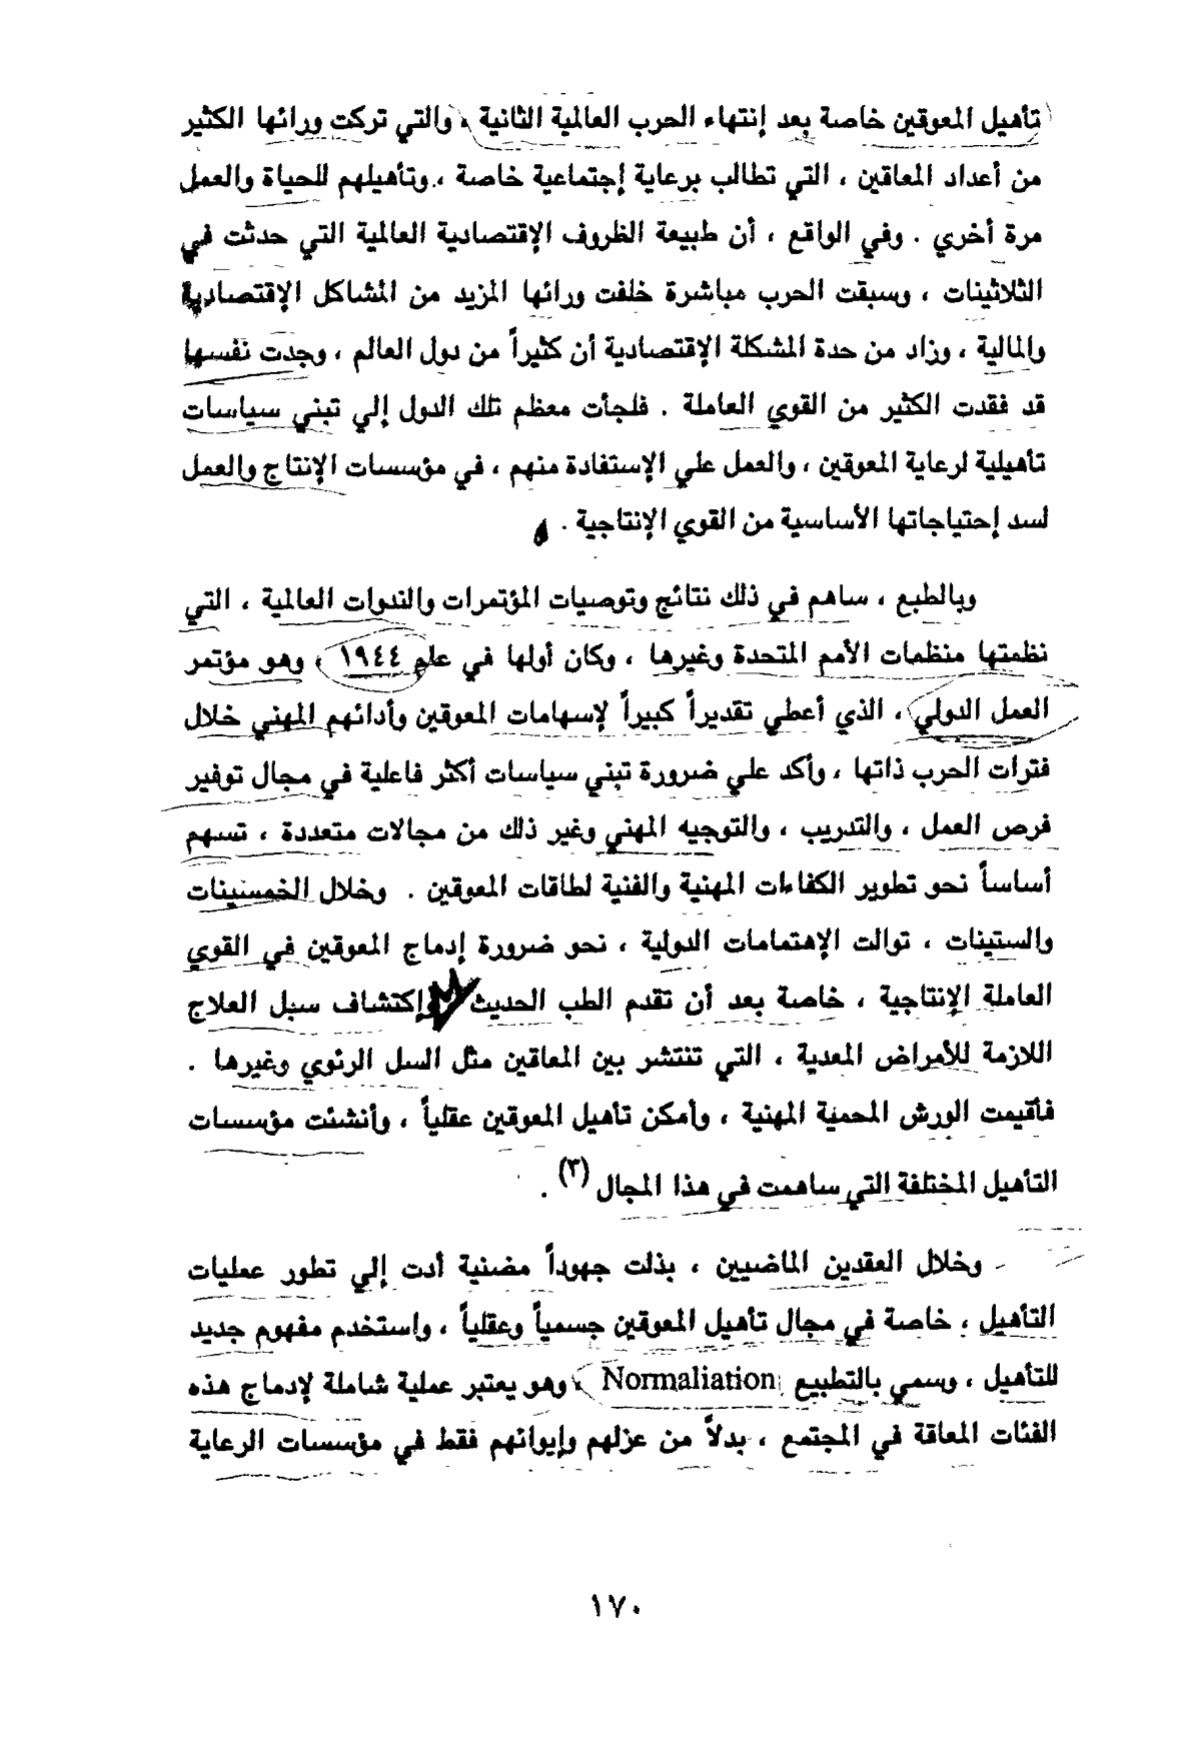 تأهيل المعوقين خاصة بعد إنتهاء الحرب العالمية الثانية ، والتي تركت ورائها الكثير
من أعداد المعاقين ، التي تطالب برعاية إجتماعية خاصة ، وتأهيلهم للحياة والعمل
مرة أخري . وفي الواقع ، أن طبيعة الظروف الإقتصادية العالمية التي حدثت في
الثلاثينات ، وسبقت الحرب مباشرة خلفت ورائها المزيد من المشاكل الإقتصادية
والمالية ، وزاد من حدة المشكلة الإقتصادية أن كثيراً من دول العالم ، وجدت نفسها
قد فقدت الكثير من القوي العاملة . فلجأت معظم تلك الدول إلي تبني سياسات
تأهيلية لرعاية المعوقين ، والعمل علي الإستفادة منهم ، في مؤسسات الإنتاج والعمل
لسد إحتياجاتها الأساسية من القوي الإنتاجية .
وبالطبع ، ساهم في ذلك نتائج وتوصيات المؤتمرات والندوات العالمية ، التي
نظمتها منظمات الأمم المتحدة وغيرها ، وكان أولها في عام ١٩٤٤ ، وهو مؤتمر
العمل الدولي ، الذي أعطي تقديراً كبيراً لإسهامات المعوقين وأدائهم المهني خلال
فترات الحرب ذاتها ، وأكد علي ضرورة تبني سياسات أكثر فاعلية في مجال توفير
فرص العمل ، والتدريب ، والتوجيه المهني وغير ذلك من مجالات متعددة ، تسهم
أساساً نحو تطوير الكفاءات المهنية والفنية لطاقات المعوقين . وخلال الخمسينات
والستينات ، توالت الإهتمامات الدولية ، نحو ضرورة إدماج المعوقين في القوي
العاملة الإنتاجية ، خاصة بعد أن تقدم الطب الحديث وإكتشاف سبل العلاج
اللازمة للأمراض المعدية ، التي تنتشر بين المعاقين مثل السل الرئوي وغيرها .
فأقيمت الورش المحمية المهنية ، وأمكن تأهيل المعوقين عقلياً ، وأنشئت مؤسسات
التأهيل المختلفة التي ساهمت في هذا المجال (٣) .
وخلال العقدين الماضيين ، بذلت جهوداً مضنية أدت إلي تطور عمليات
التأهيل ، خاصة في مجال تأهيل المعوقين جسمياً وعقلياً ، واستخدم مفهوم جديد
للتأهيل ، وسمي بالتطبيع Normaliation ، وهو يعتبر عملية شاملة لإدماج هذه
الفئات المعاقة في المجتمع ، بدلاً من عزلهم وإيوائهم فقط في مؤسسات الرعاية
١٧٠